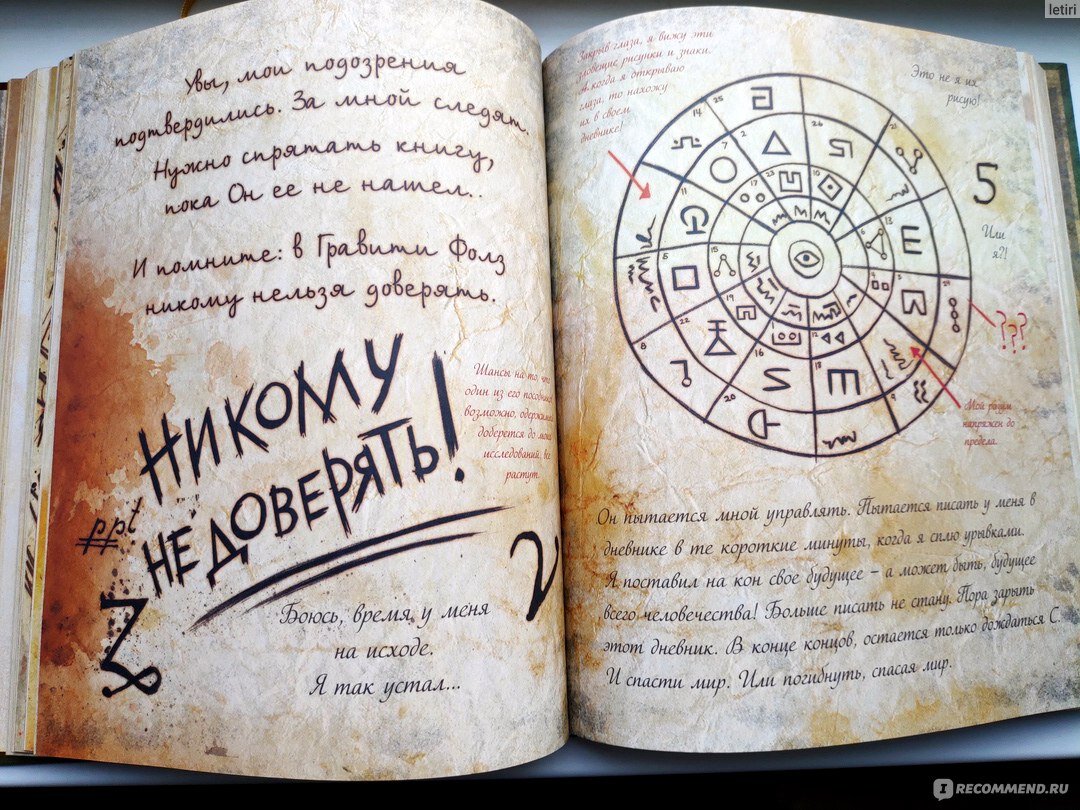 letiri
Увы, мои подозрения
подтвердились. За мной следят.
Нужно спрятать книгу,
пока Он ее не нашел..
И помните: в Гравити Фолз
никому нельзя доверять.
НИКОМУ
НЕ ДОВЕРЯТЬ!
Шансы на то, что
один из его пособников,
возможно, одержимый
доберется до моих
исследований, все
растут.
ppt
Боюсь, время у меня
на исходе.
Я так устал...
Закрыв глаза, я вижу эти
зловещие рисунки и знаки.
А когда я открываю
глаза, то нахожу
их в своем
дневнике!
Это не я их
рисую!
5
Или
я?!
???
Мой разум
напряжен до
предела.
Он пытается мной управлять. Пытается писать у меня в
дневнике в те короткие минуты, когда я сплю урывками.
Я поставил на кон свое будущее – а может быть, будущее
всего человечества! Больше писать не стану. Пора зарыть
этот дневник. В конце концов, остается только дождаться С.
И спасти мир. Или погибнуть, спасая мир.
IRECOMMEND.RU